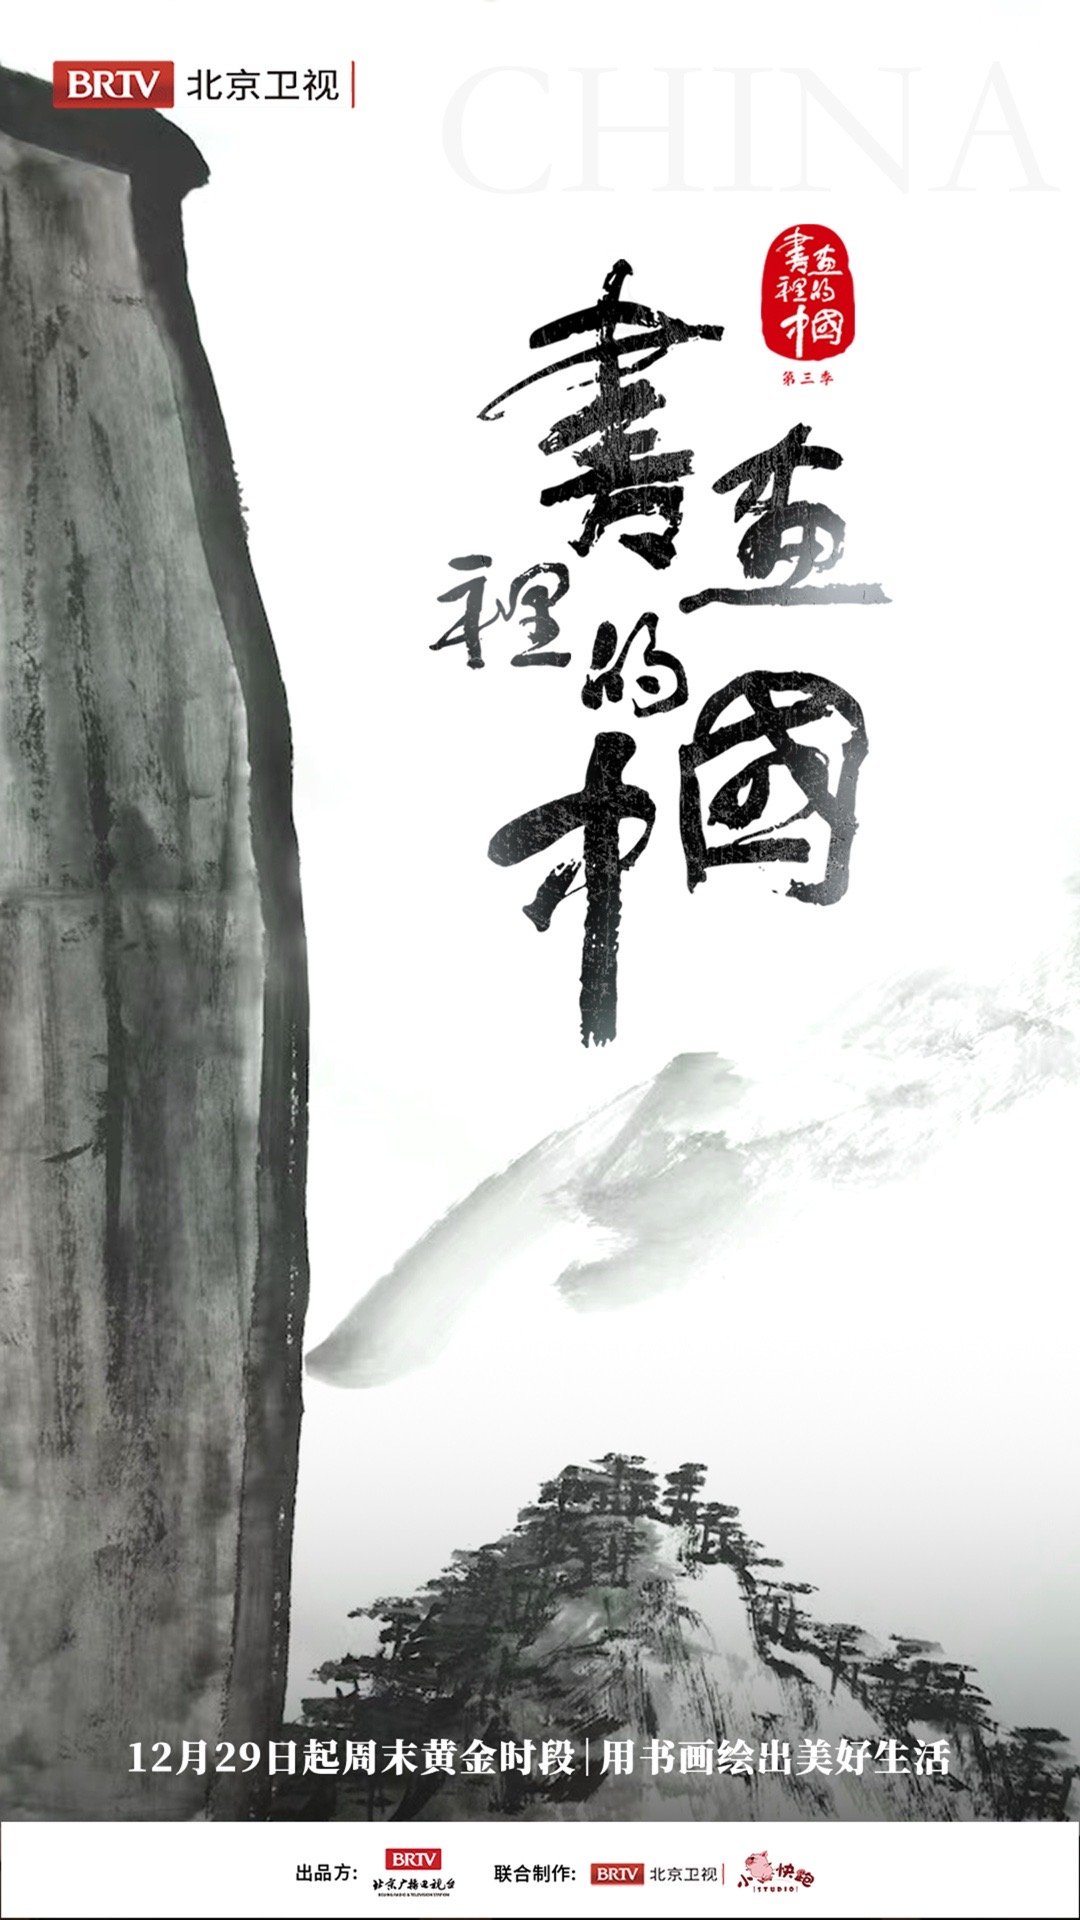 BRTV 北京卫视
CHINA
書画
裡的
中國
書画
裡的
中國
第三季
12月29日起周末黄金时段|用书画绘出美好生活
出品方: BRTV 北京广播电视台 联合制作: BRTV 北京卫视 小猪快跑 STUDIO